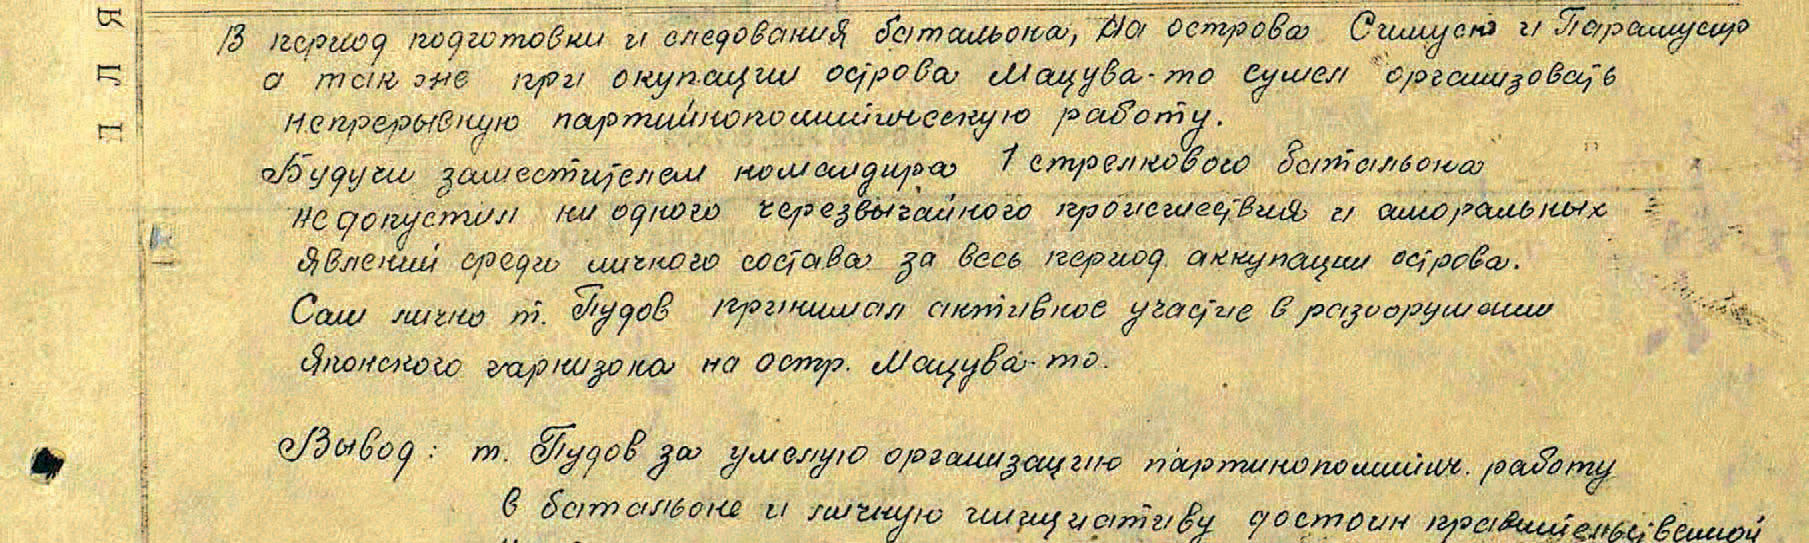 В период подготовки и следования батальона, на острова Симусю и Парамусир
а так же при окупации острова Мацува-то сумел организовать
непрерывную партийнополитическую работу.
Будучи заместителем командира 1 стрелкового батальона
не допустил ни одного черезвычайного происшествия и аморальных
явлений среди личного состава за весь период аккупации острова.
Сам лично т. Пудов принимал активное участие в разоорушении
Японского гарнизона на остр. Мацува-то.
Вывод: т. Пудов за умелую организацию партинополитич. работу
в батальоне и личную инициативу достоин правительственной
Л Я